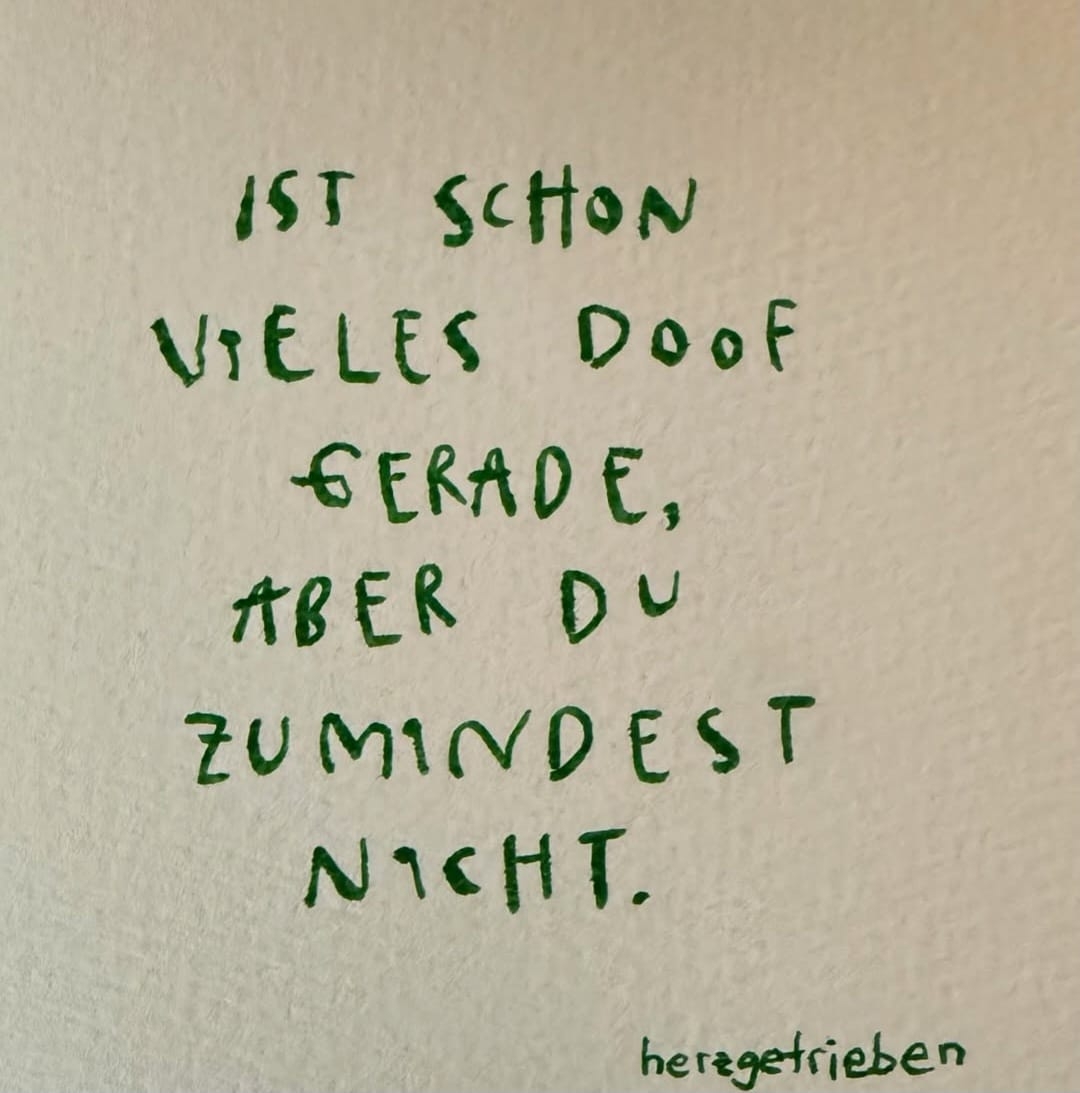 IST SCHON
VIELES DOOF
GERADE,
ABER DU
ZUMINDEST
NICHT.
herzgetrieben